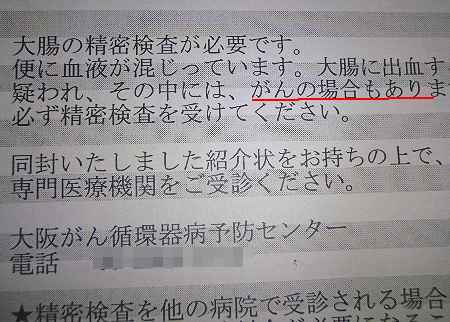 大腸の精密検査が必要です。
便に血液が混じっています。大腸に出血す
疑われ、その中には、がんの場合もありま
必ず精密検査を受けてください。
同封いたしました紹介状をお持ちの上で、
専門医療機関をご受診ください。
大阪がん循環器病予防センター
電話
★精密検査を他の病院で受診される場合